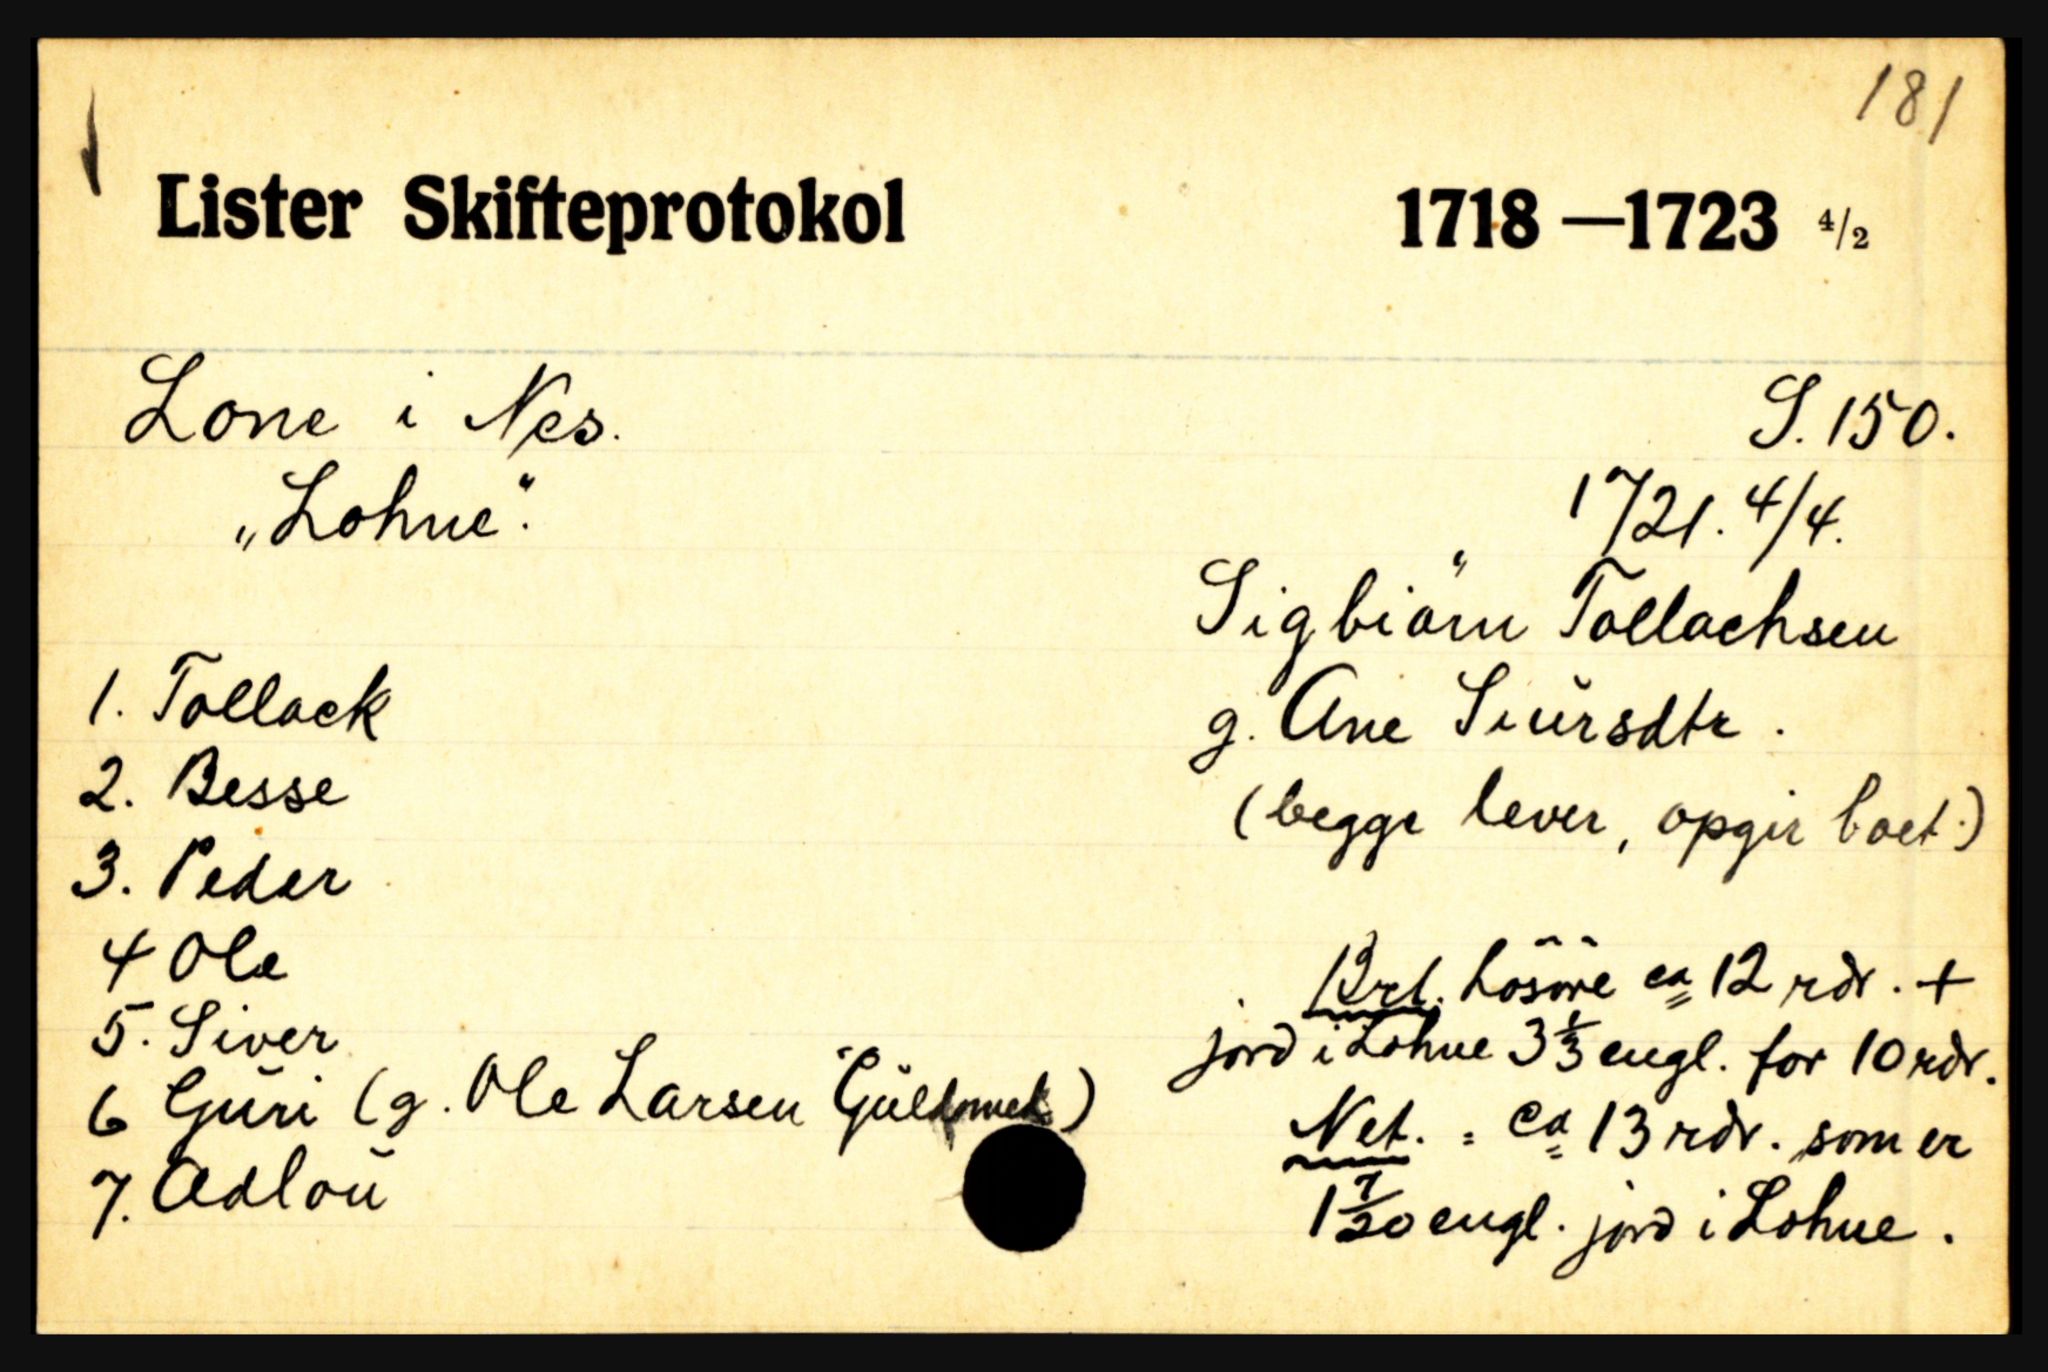 181
Lister Skifteprotokol 1718 — 1723 4/2
Lone i Nes. S. 150.
„Lohne“. 1721. 4/4.
Sigbiörn Tollachsen
g. Ane Siŭrsdtr.
(begge lever, opgir boet.)
1. Tollack
2. Besse
3. Peder
4 Ole
5. Siver
6 Gŭri (g. Ole Larsen
7. Adloŭ
Brt. Lösöre ca 12 rdr. +
jord i Lohne 3 1/3 engl. for 10 rdr.
Net. = ca 13 rdr. som er
1 7/20 engl. jord i Lohne.